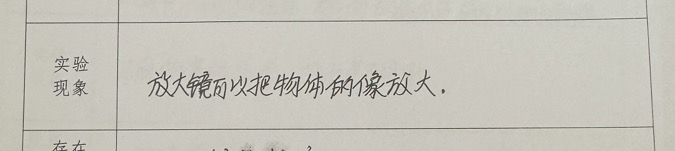 实验
现象
放大镜可以把物体的像放大.
存在